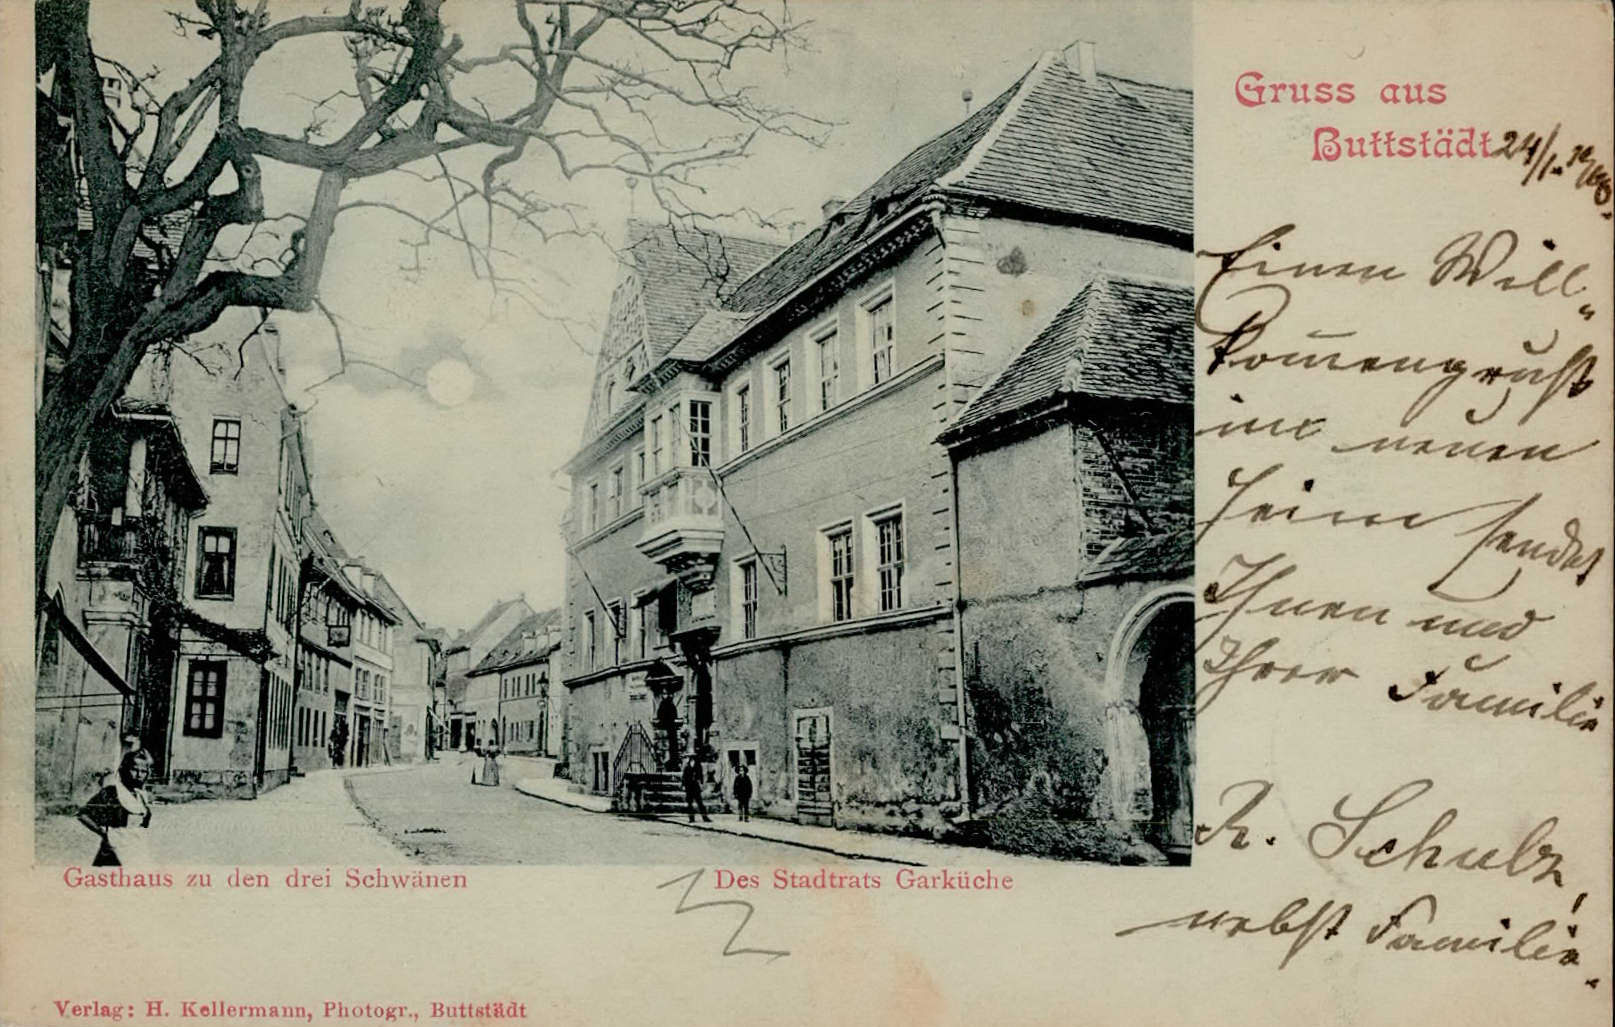 Gruss aus
Buttstädt
24/1.
Einen Will-
komengruß
im neuen
Heim sendet
Ihnen und
Ihrer Familie
R. Schulz,
nebst Familie.
Gasthaus zu den drei Schwänen
Des Stadtrats Garküche
Verlag: H. Kellermann, Photogr., Buttstädt